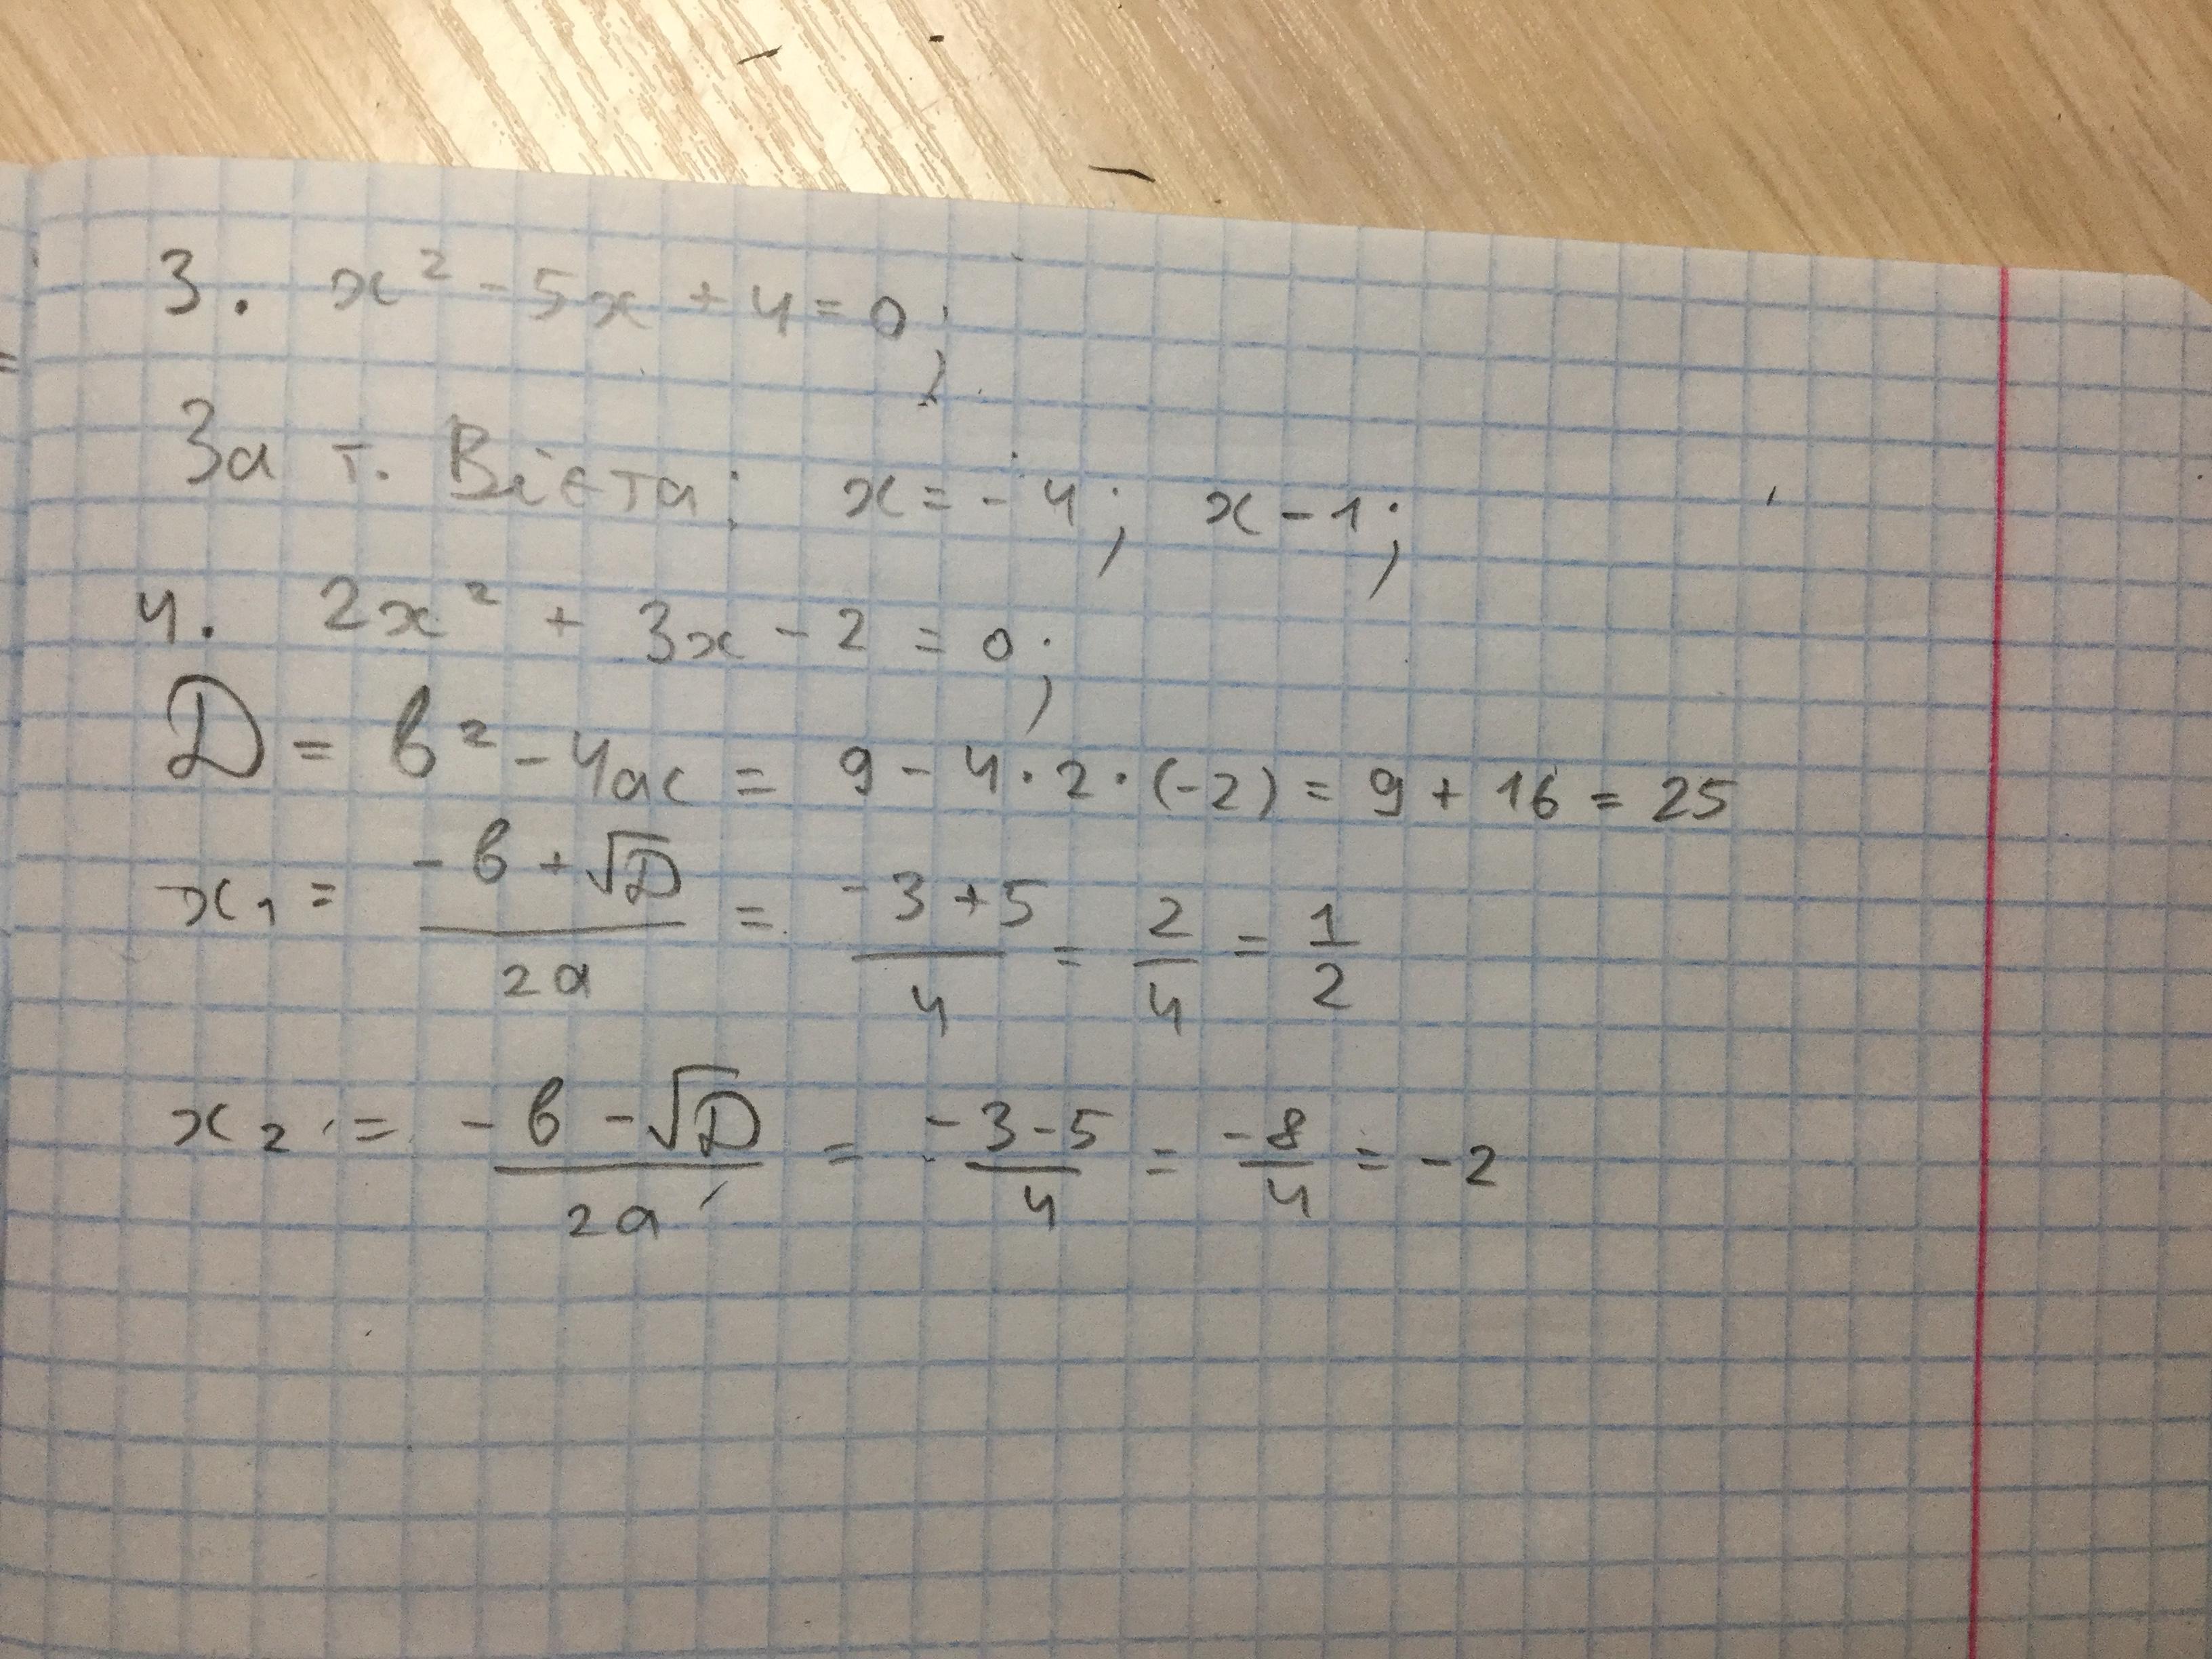 3. x² - 5x + 4 = 0;
За т. Вієта: x = - 4; x - 1;
4. 2x² + 3x - 2 = 0;
D = b² - 4ac = 9 - 4 · 2 · (-2) = 9 + 16 = 25
x₁ = (-b + √D)/(2a) = (-3 + 5)/4 = 2/4 = 1/2
x₂ = (-b - √D)/(2a) = (-3 - 5)/4 = -8/4 = -2